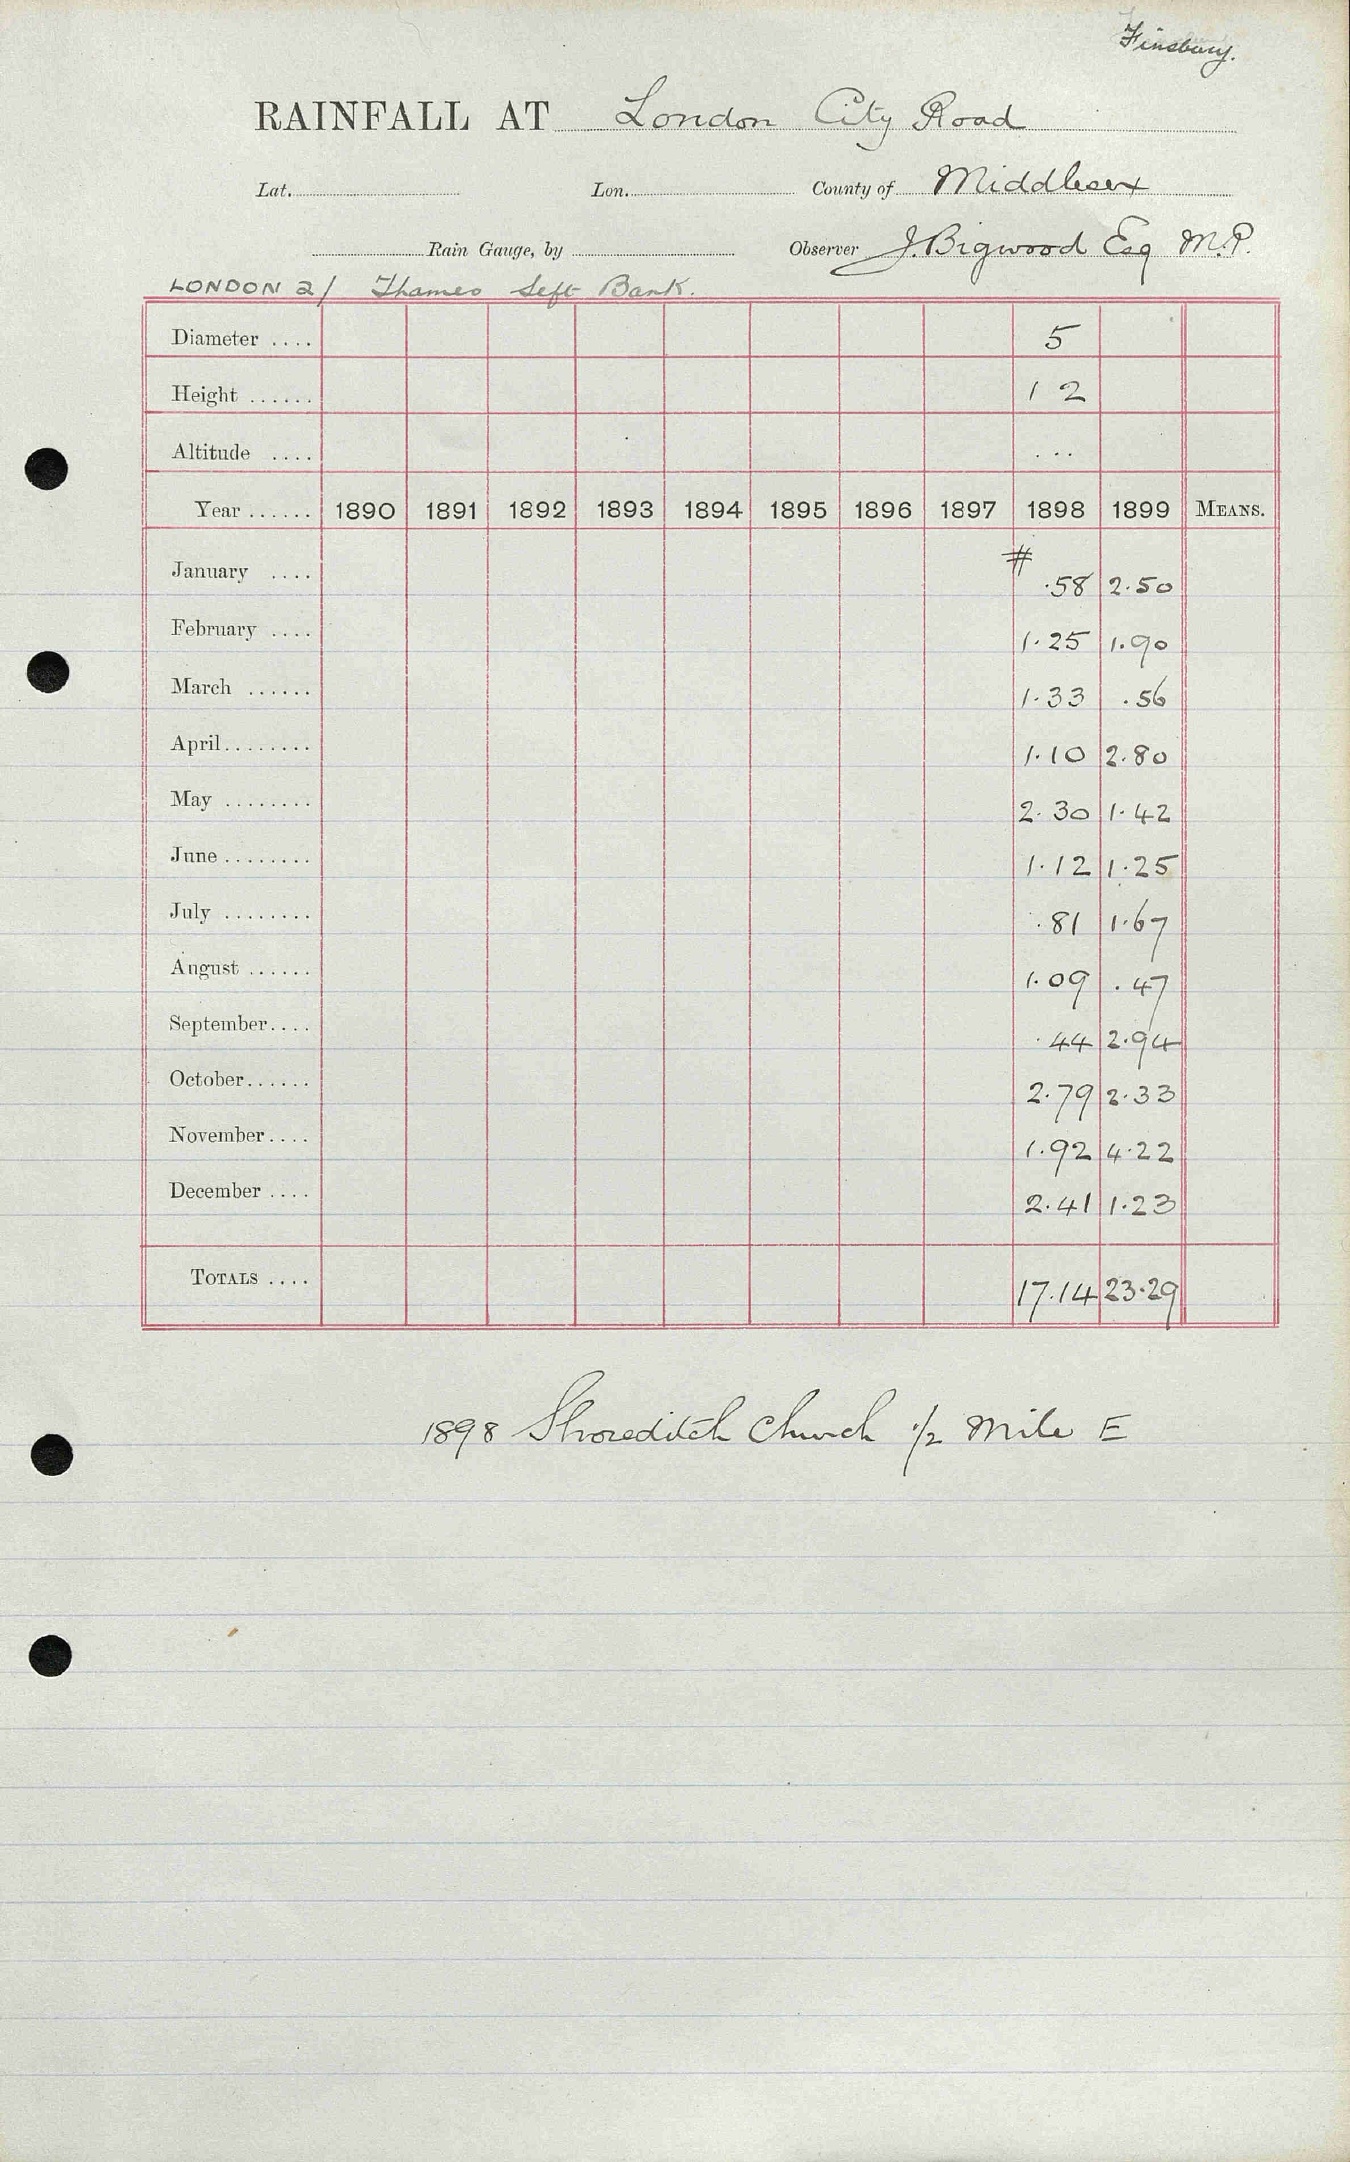 Finsbury.
RAINFALL AT London City Road
Lat. Lon. County of Middlesex
Rain Gauge, by Observer J. Bigwood Esq M.P.
LONDON 2/ Thames Left Bank.
Diameter .... 5
Height ...... 1 2
Altitude .... ...
Year ...... 1890 1891 1892 1893 1894 1895 1896 1897 1898 1899 MEANS.
#
January .... .58 2.50
February .... 1.25 1.90
March ...... 1.33 .56
April........ 1.10 2.80
May ........ 2.30 1.42
June ........ 1.12 1.25
July ........ .81 1.67
August ...... 1.09 .47
September.... .44 2.94
October...... 2.79 2.33
November.... 1.92 4.22
December .... 2.41 1.23
TOTALS .... 17.14 23.29
1898 Shoreditch Church 1/2 Mile E